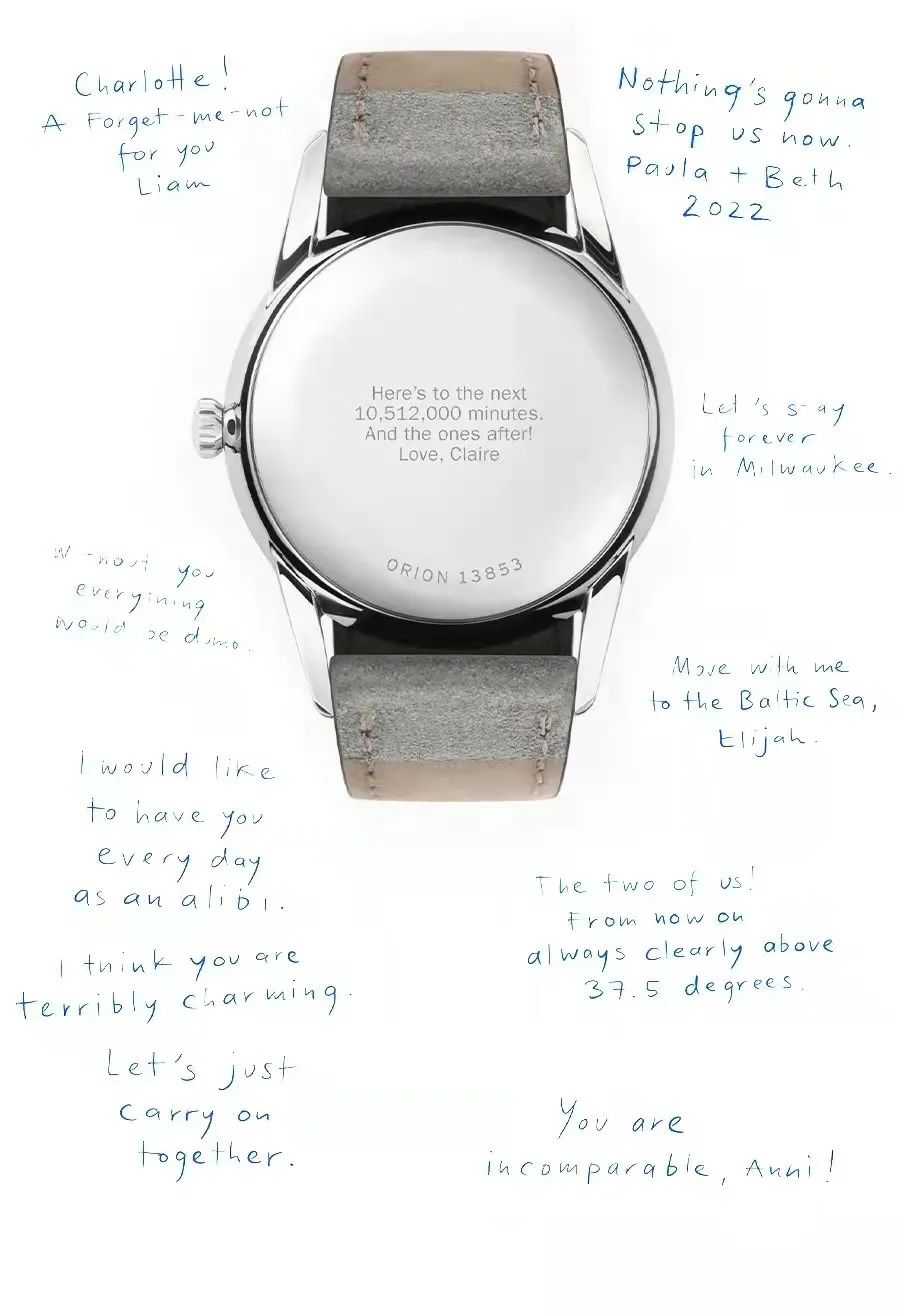 Charlotte!
A Forget-me-not
for you
Liam
Nothing's gonna
stop us now.
Paula + Beth
2022
Here's to the next
10,512,000 minutes.
And the ones after!
Love, Claire
ORION 13853
Let's stay
forever
in Milwaukee.
you
would
Move with me
to the Baltic Sea,
Elijah.
I would like
to have you
every day
as an alibi.
The two of us!
From now on
always clearly above
37.5 degrees.
I think you are
terribly charming.
Let's just
carry on
together.
You are
incomparable, Anni!